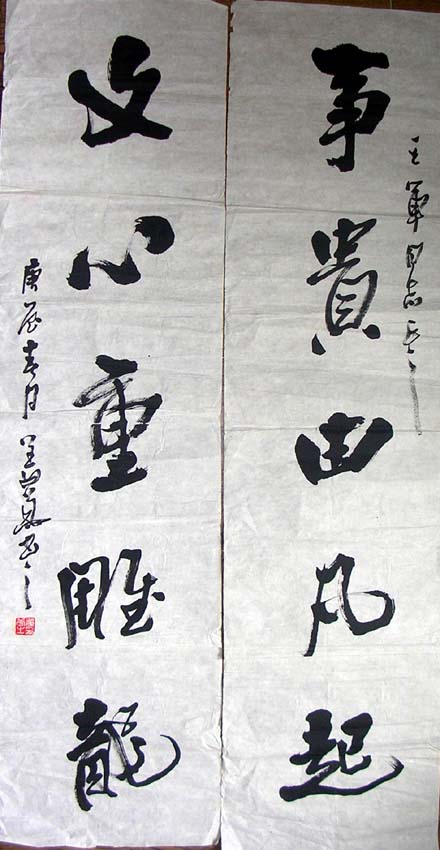 王军同志正之
事貴由凡起
文心重雕龍
庚辰春月